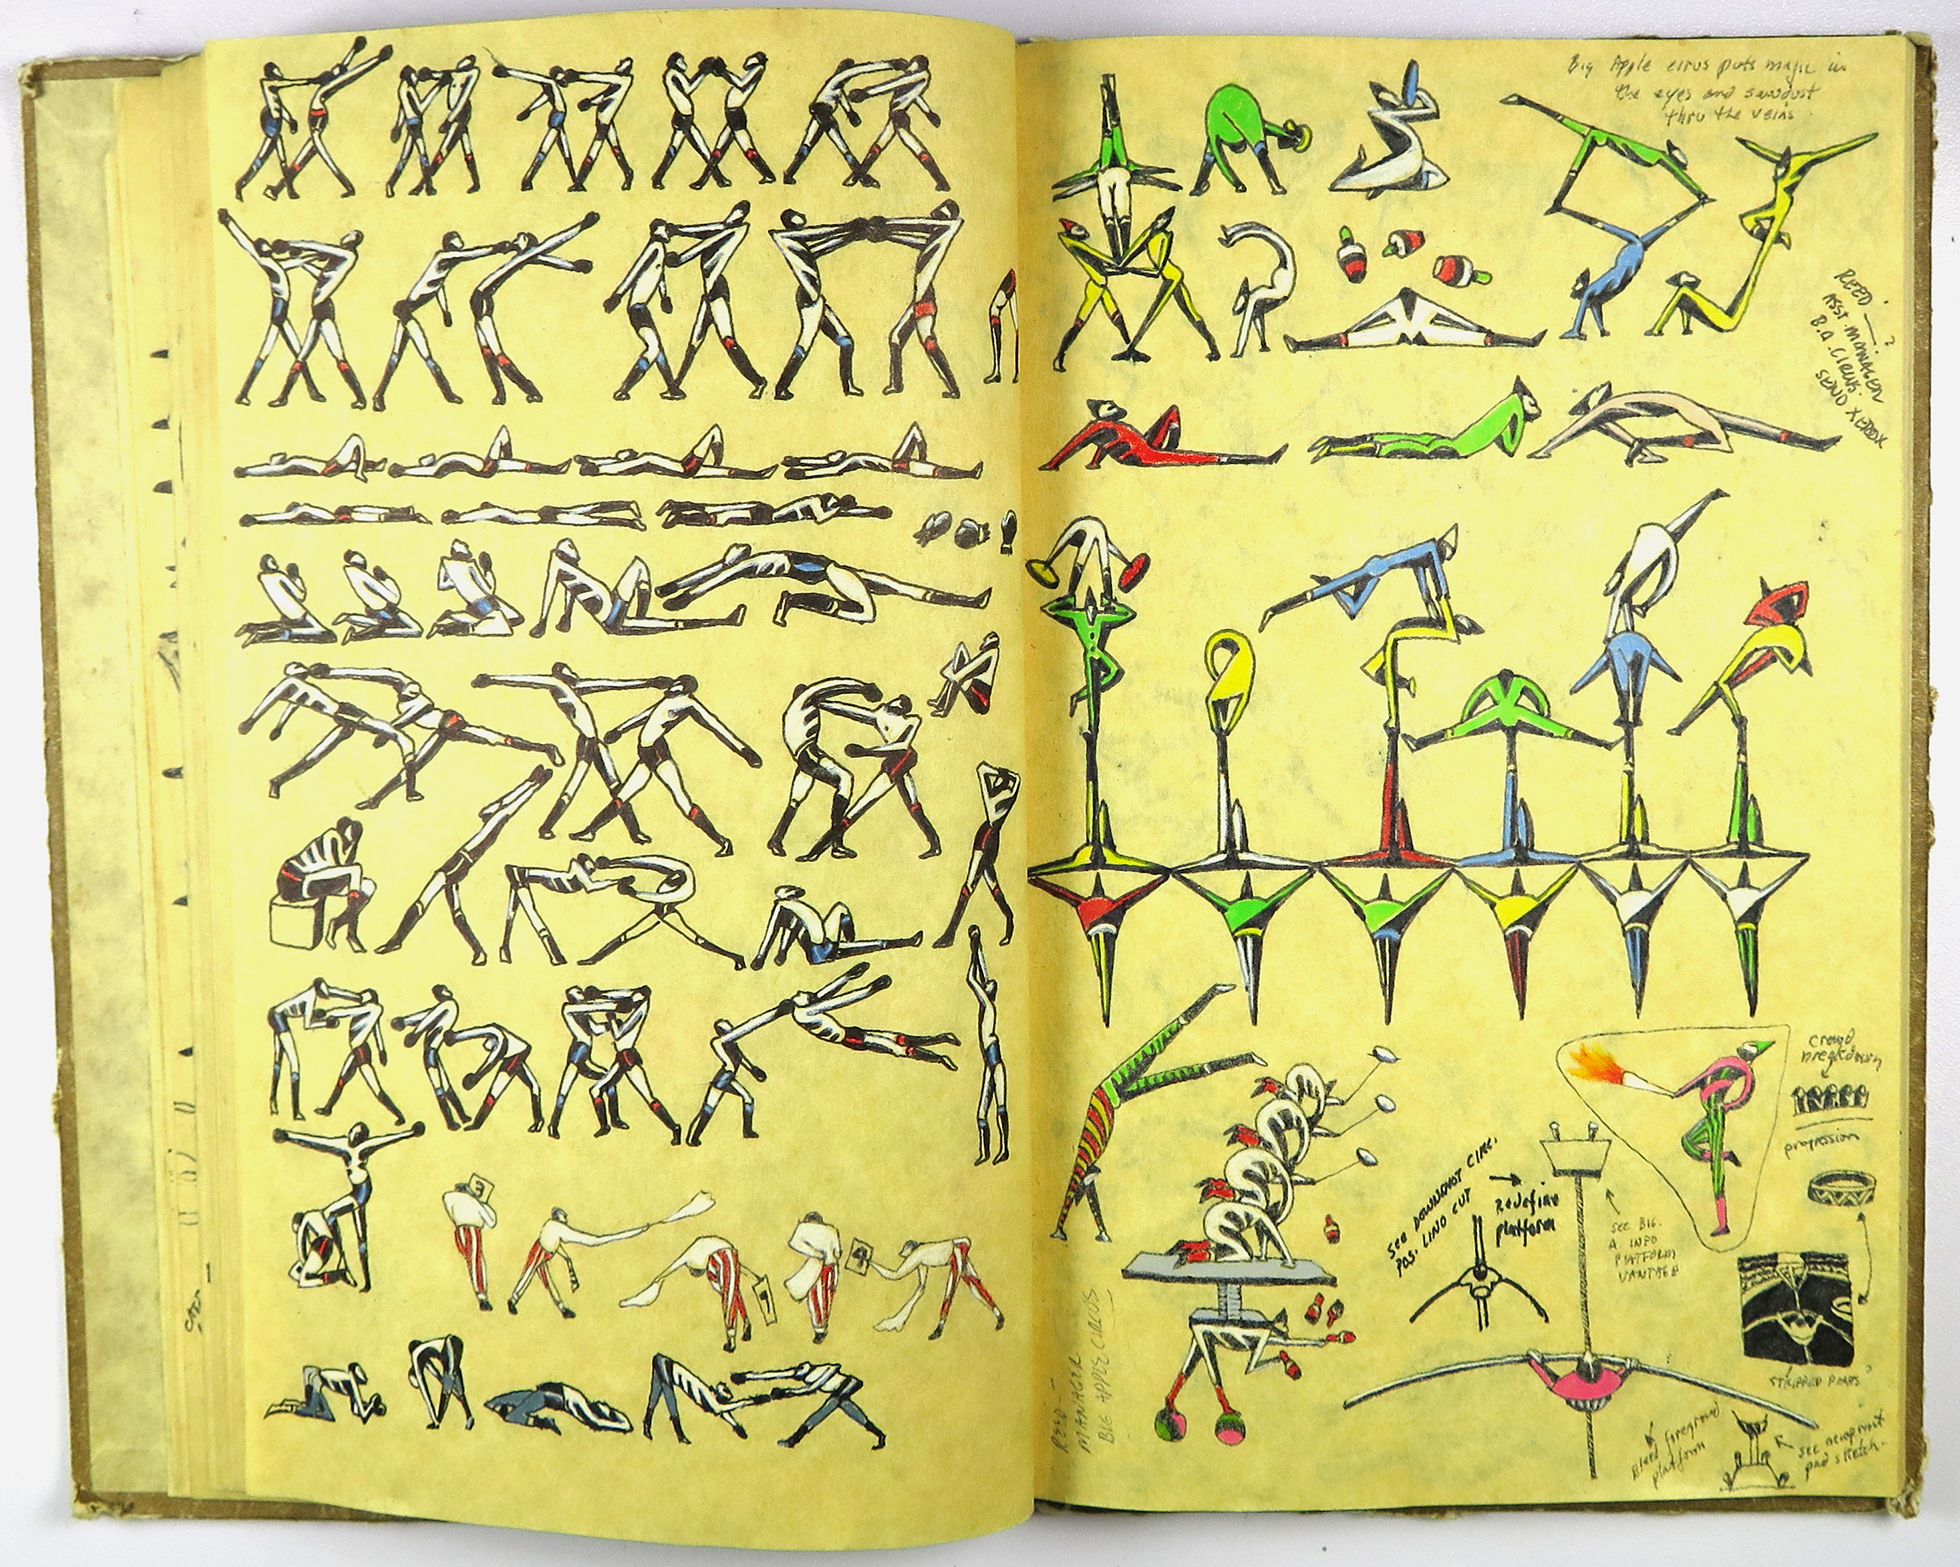 3
1
4
Big Apple cirus puts magic in
the eyes and sawdust
thru the veins
REED -
ASST. MANAGER
B.A. CIRUS.
SEND XEROX
?
crowd
breakdown
progression
SEE DOWNSHOT CIRC.
POS. LINO CUT
Redefine
platform
SEE BIG.
A INFO
PLATFORM
VANTAGE
STRIPPED
REED -
MANAGER
BIG APPLE CIRCUS
Bleed foreground
platform
see newsprint
pad sketch.